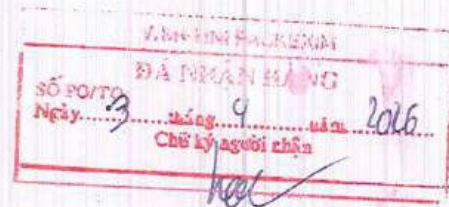 ĐÃ NHẬN HÀNG
SỐ PO/TO
Ngày.....3.....tháng....9.......năm...2026....
Chữ ký người nhận